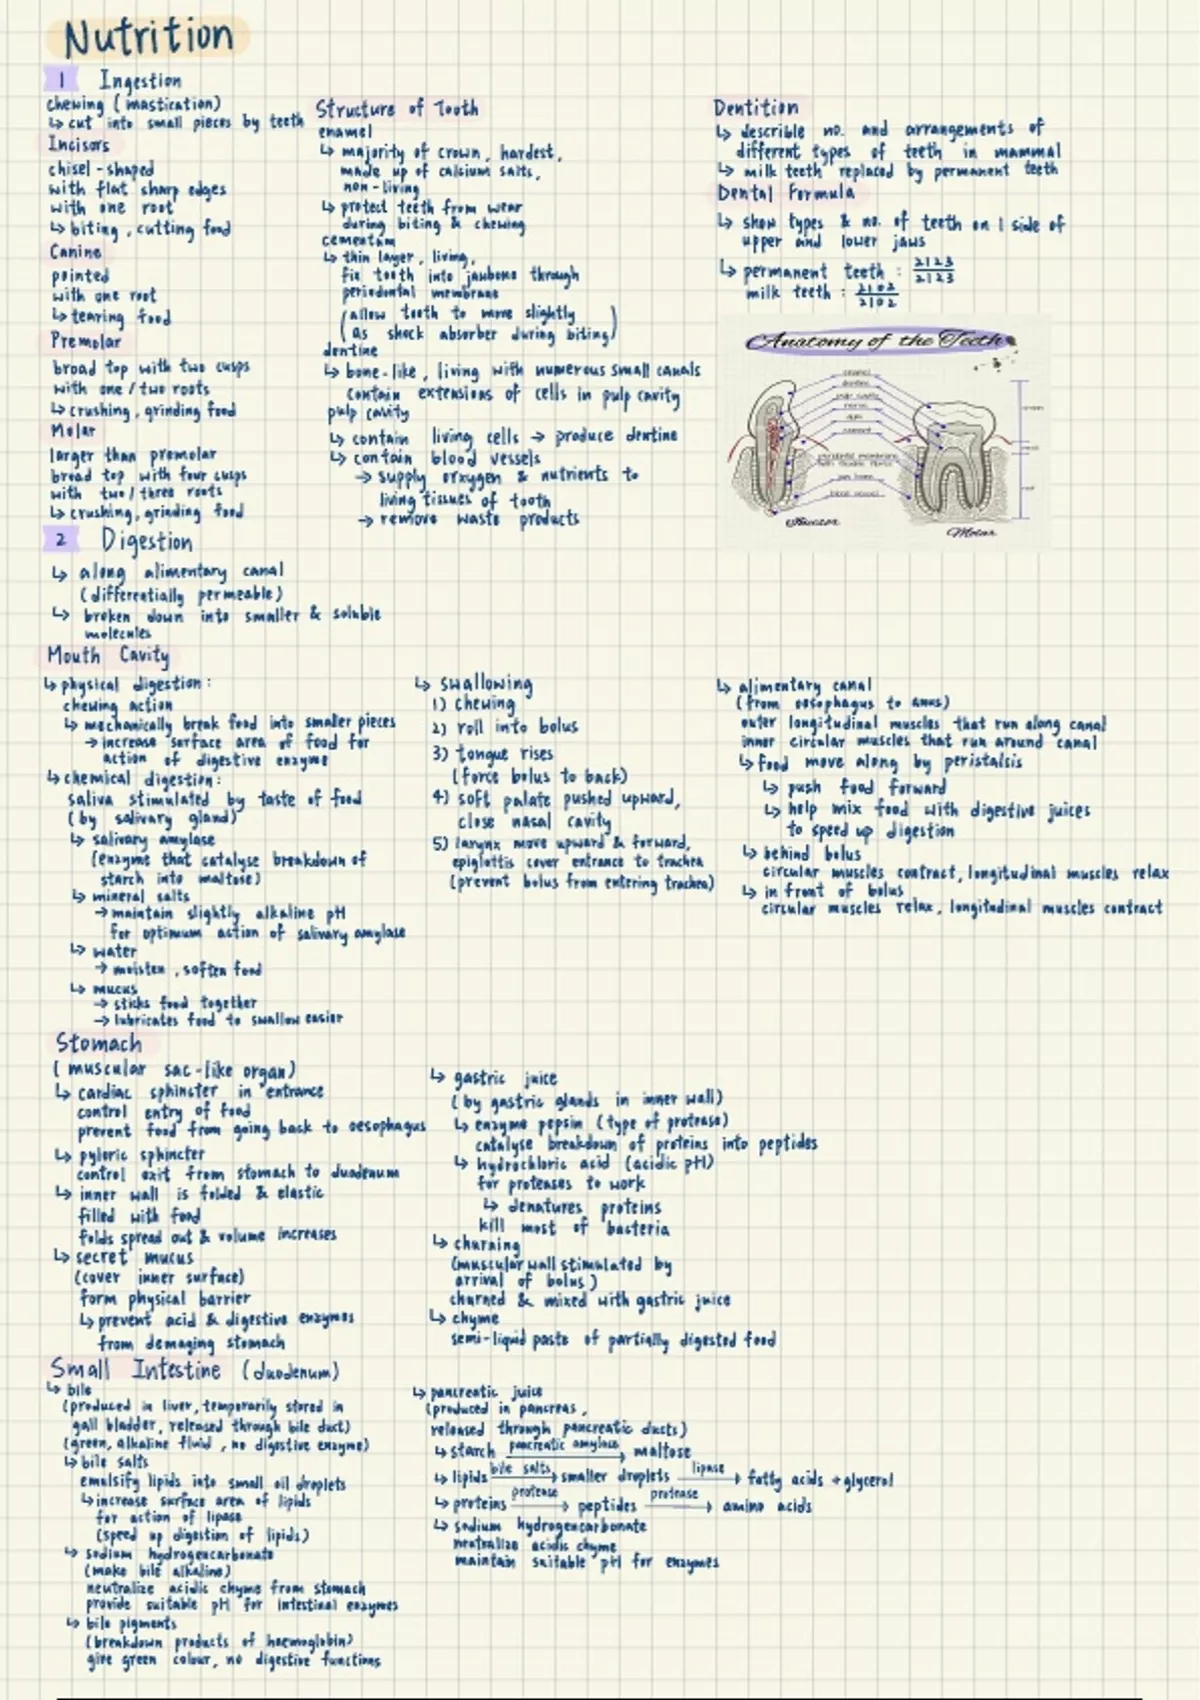 Nutrition
1 Ingestion
chewing (mastication)
↳ cut into small pieces by teeth
Incisors
chisel-shaped
with flat sharp edges
with one root
↳ biting, cutting food
Canine
pointed
with one root
↳ tearing food
Premolar
broad top with two cusps
with one / two roots
↳ crushing, grinding food
Molar
larger than premolar
broad top with four cusps
with two / three roots
↳ crushing, grinding food
Structure of Tooth
enamel
↳ majority of crown, hardest,
made up of calcium salts,
non-living
↳ protect teeth from wear
during biting & chewing
cementum
↳ thin layer, living,
fix tooth into jawbone through
periodontal membrane
(allow tooth to move slightly
as shock absorber during biting)
dentine
↳ bone-like, living with numerous small canals
contain extensions of cells in pulp cavity
pulp cavity
↳ contain living cells → produce dentine
↳ contain blood vessels
→ supply orxygen & nutrients to
living tissues of tooth
→ remove waste products
Dentition
↳ describle no. and arrangements of
different types of teeth in mammal
↳ milk teeth replaced by permanent teeth
Dental Formula
↳ show types & no. of teeth on 1 side of
upper and lower jaws
↳ permanent teeth : 2123/2123
milk teeth : 2102/2102
Anatomy of the Teeth
enamel
dentine
pulp cavity
nerve
gum
cement
periodontal membrane
jaw bone
blood vessel
Incisor
Molar
2 Digestion
↳ along alimentary canal
(differentially permeable)
↳ broken down into smaller & soluble
molecules
Mouth Cavity
↳ physical digestion :
chewing action
↳ mechanically break food into smaller pieces
→ increase surface area of food for
action of digestive enzyme
↳ chemical digestion :
saliva stimulated by taste of food
(by salivary gland)
↳ salivary amylase
(enzyme that catalyse breakdown of
starch into maltose)
↳ mineral salts
→ maintain slightly alkaline pH
for optimum action of salivary amylase
↳ water
→ moisten, soften food
↳ mucus
→ sticks food together
→ lubricates food to swallow easier
↳ swallowing
1) chewing
2) roll into bolus
3) tongue rises
(force bolus to back)
4) soft palate pushed upward,
close nasal cavity
5) larynx move upward & forward,
epiglottis cover entrance to trachea
(prevent bolus from entering trachea)
↳ alimentary canal
(from oesophagus to anus)
outer longitudinal muscles that run along canal
inner circular muscles that run around canal
↳ food move along by peristalsis
↳ push food forward
↳ help mix food with digestive juices
to speed up digestion
↳ behind bolus
circular muscles contract, longitudinal muscles relax
↳ in front of bolus
circular muscles relax, longitudinal muscles contract
Stomach
(muscular sac-like organ)
↳ cardiac sphincter in entrance
control entry of food
prevent food from going back to oesophagus
↳ pyloric sphincter
control exit from stomach to duodenum
↳ inner wall is folded & elastic
filled with food
folds spread out & volume increases
↳ secret mucus
(cover inner surface)
form physical barrier
↳ prevent acid & digestive enzymes
from demaging stomach
↳ gastric juice
(by gastric glands in inner wall)
↳ enzyme pepsin (type of protease)
catalyse breakdown of proteins into peptides
↳ hydrochloric acid (acidic pH)
for proteases to work
↳ denatures proteins
kill most of bacteria
↳ churning
(muscular wall stimulated by
arrival of bolus)
churned & mixed with gastric juice
↳ chyme
semi-liquid paste of partially digested food
Small Intestine (duodenum)
↳ bile
(produced in liver, temporarily stored in
gall bladder, released through bile duct)
(green, alkaline fluid, no digestive enzyme)
↳ bile salts
emulsify lipids into small oil droplets
↳ increase surface area of lipids
for action of lipase
(speed up digestion of lipids)
↳ sodium hydrogencarbonate
(make bile alkaline)
neutralize acidic chyme from stomach
provide suitable pH for intestinal enzymes
↳ bile pigments
(breakdown products of haemoglobin)
give green colour, no digestive functions
↳ pancreatic juice
(produced in pancreas,
released through pancreatic ducts)
↳ starch pancreatic amylase → maltose
↳ lipids bile salts → smaller droplets lipase → fatty acids + glycerol
↳ proteins protease → peptides protease → amino acids
↳ sodium hydrogencarbonate
neutralize acidic chyme
maintain suitable pH for enzymes